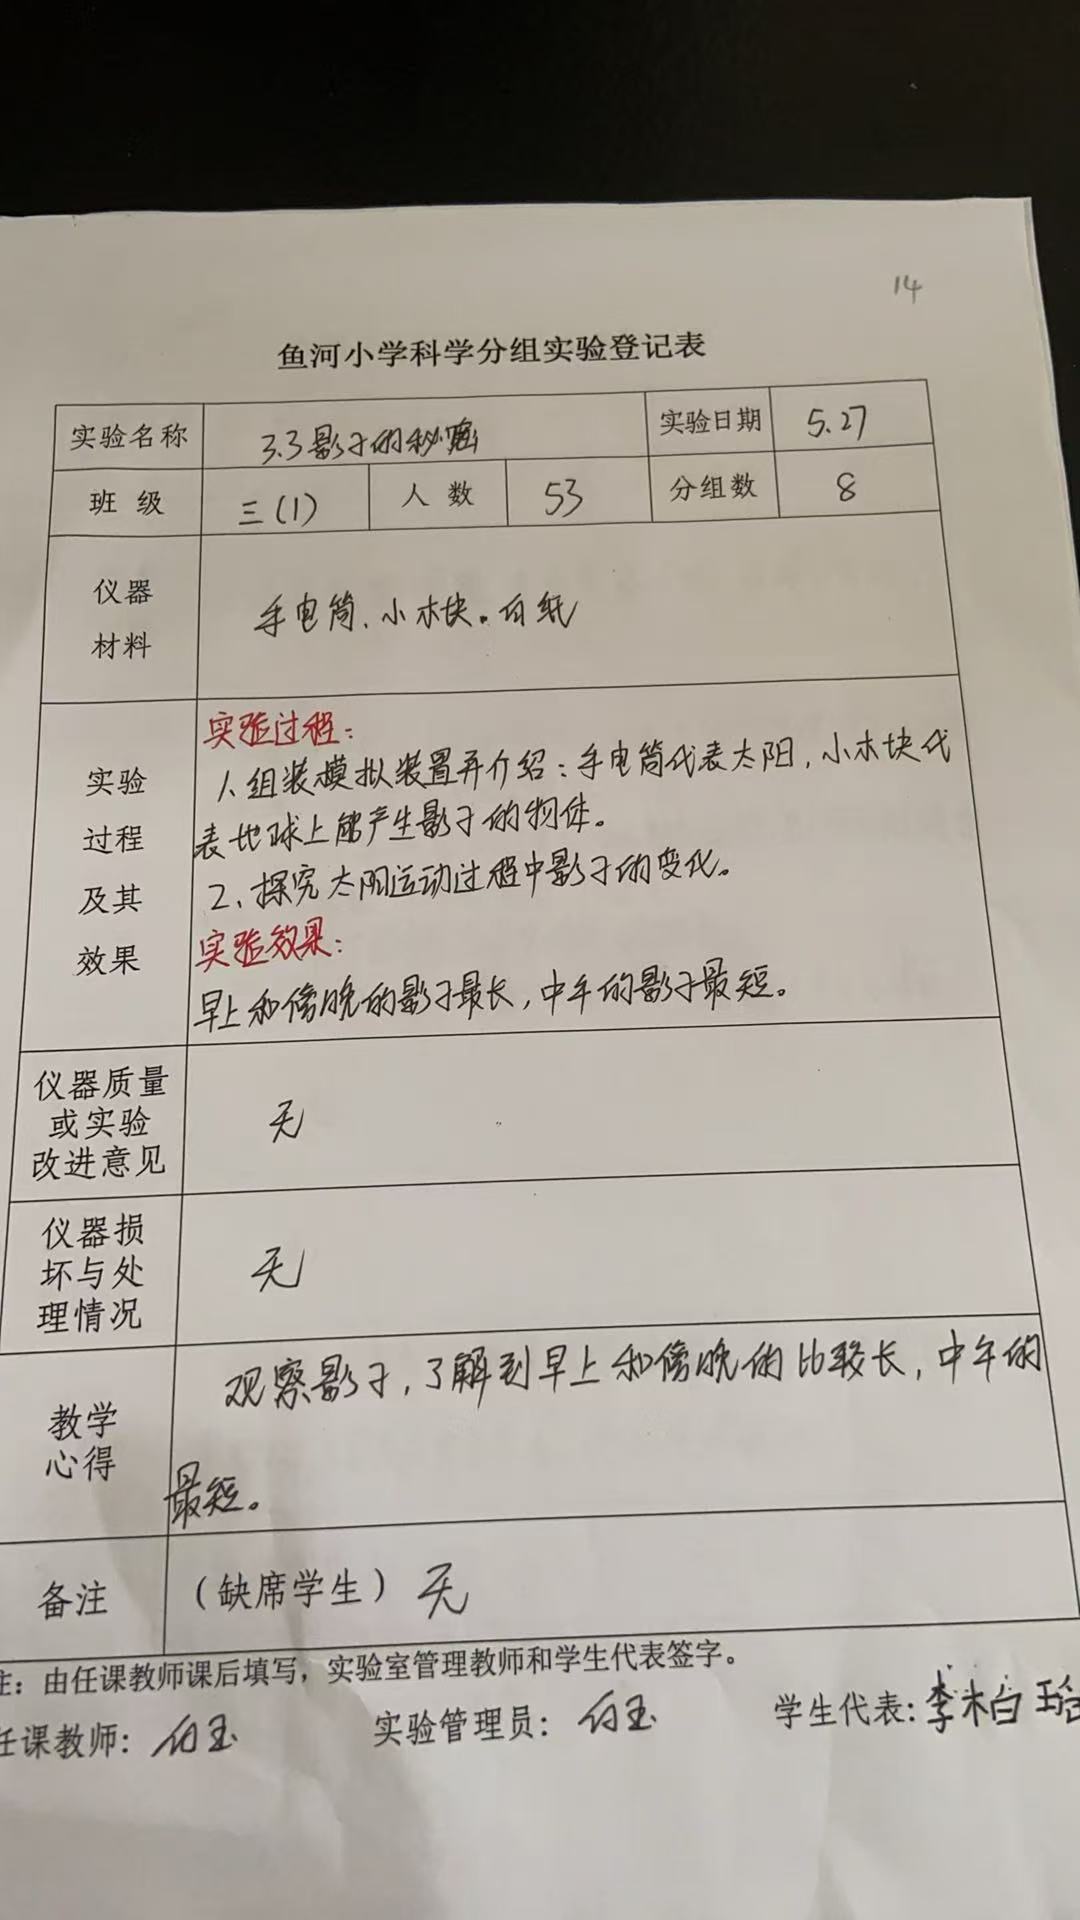 14
鱼河小学科学分组实验登记表
实验名称 3.3影子的秘密 实验日期 5.27
班 级 三(1) 人 数 53 分组数 8
仪器
材料
手电筒、小木块。白纸
实验
过程
及其
效果
实验过程:
1、组装模拟装置并介绍:手电筒代表太阳,小木块代
表地球上能产生影子的物体。
2、探究太阳运动过程中影子的变化。
实验效果:
早上和傍晚的影子最长,中午的影子最短。
仪器质量
或实验
改进意见
无
仪器损
坏与处
理情况
无
教学
心得
观察影子,了解到早上和傍晚的比较长,中午的
最短。
备注 (缺席学生) 无
注:由任课教师课后填写,实验室管理教师和学生代表签字。
任课教师: 白玉 实验管理员: 白玉 学生代表: 李柏